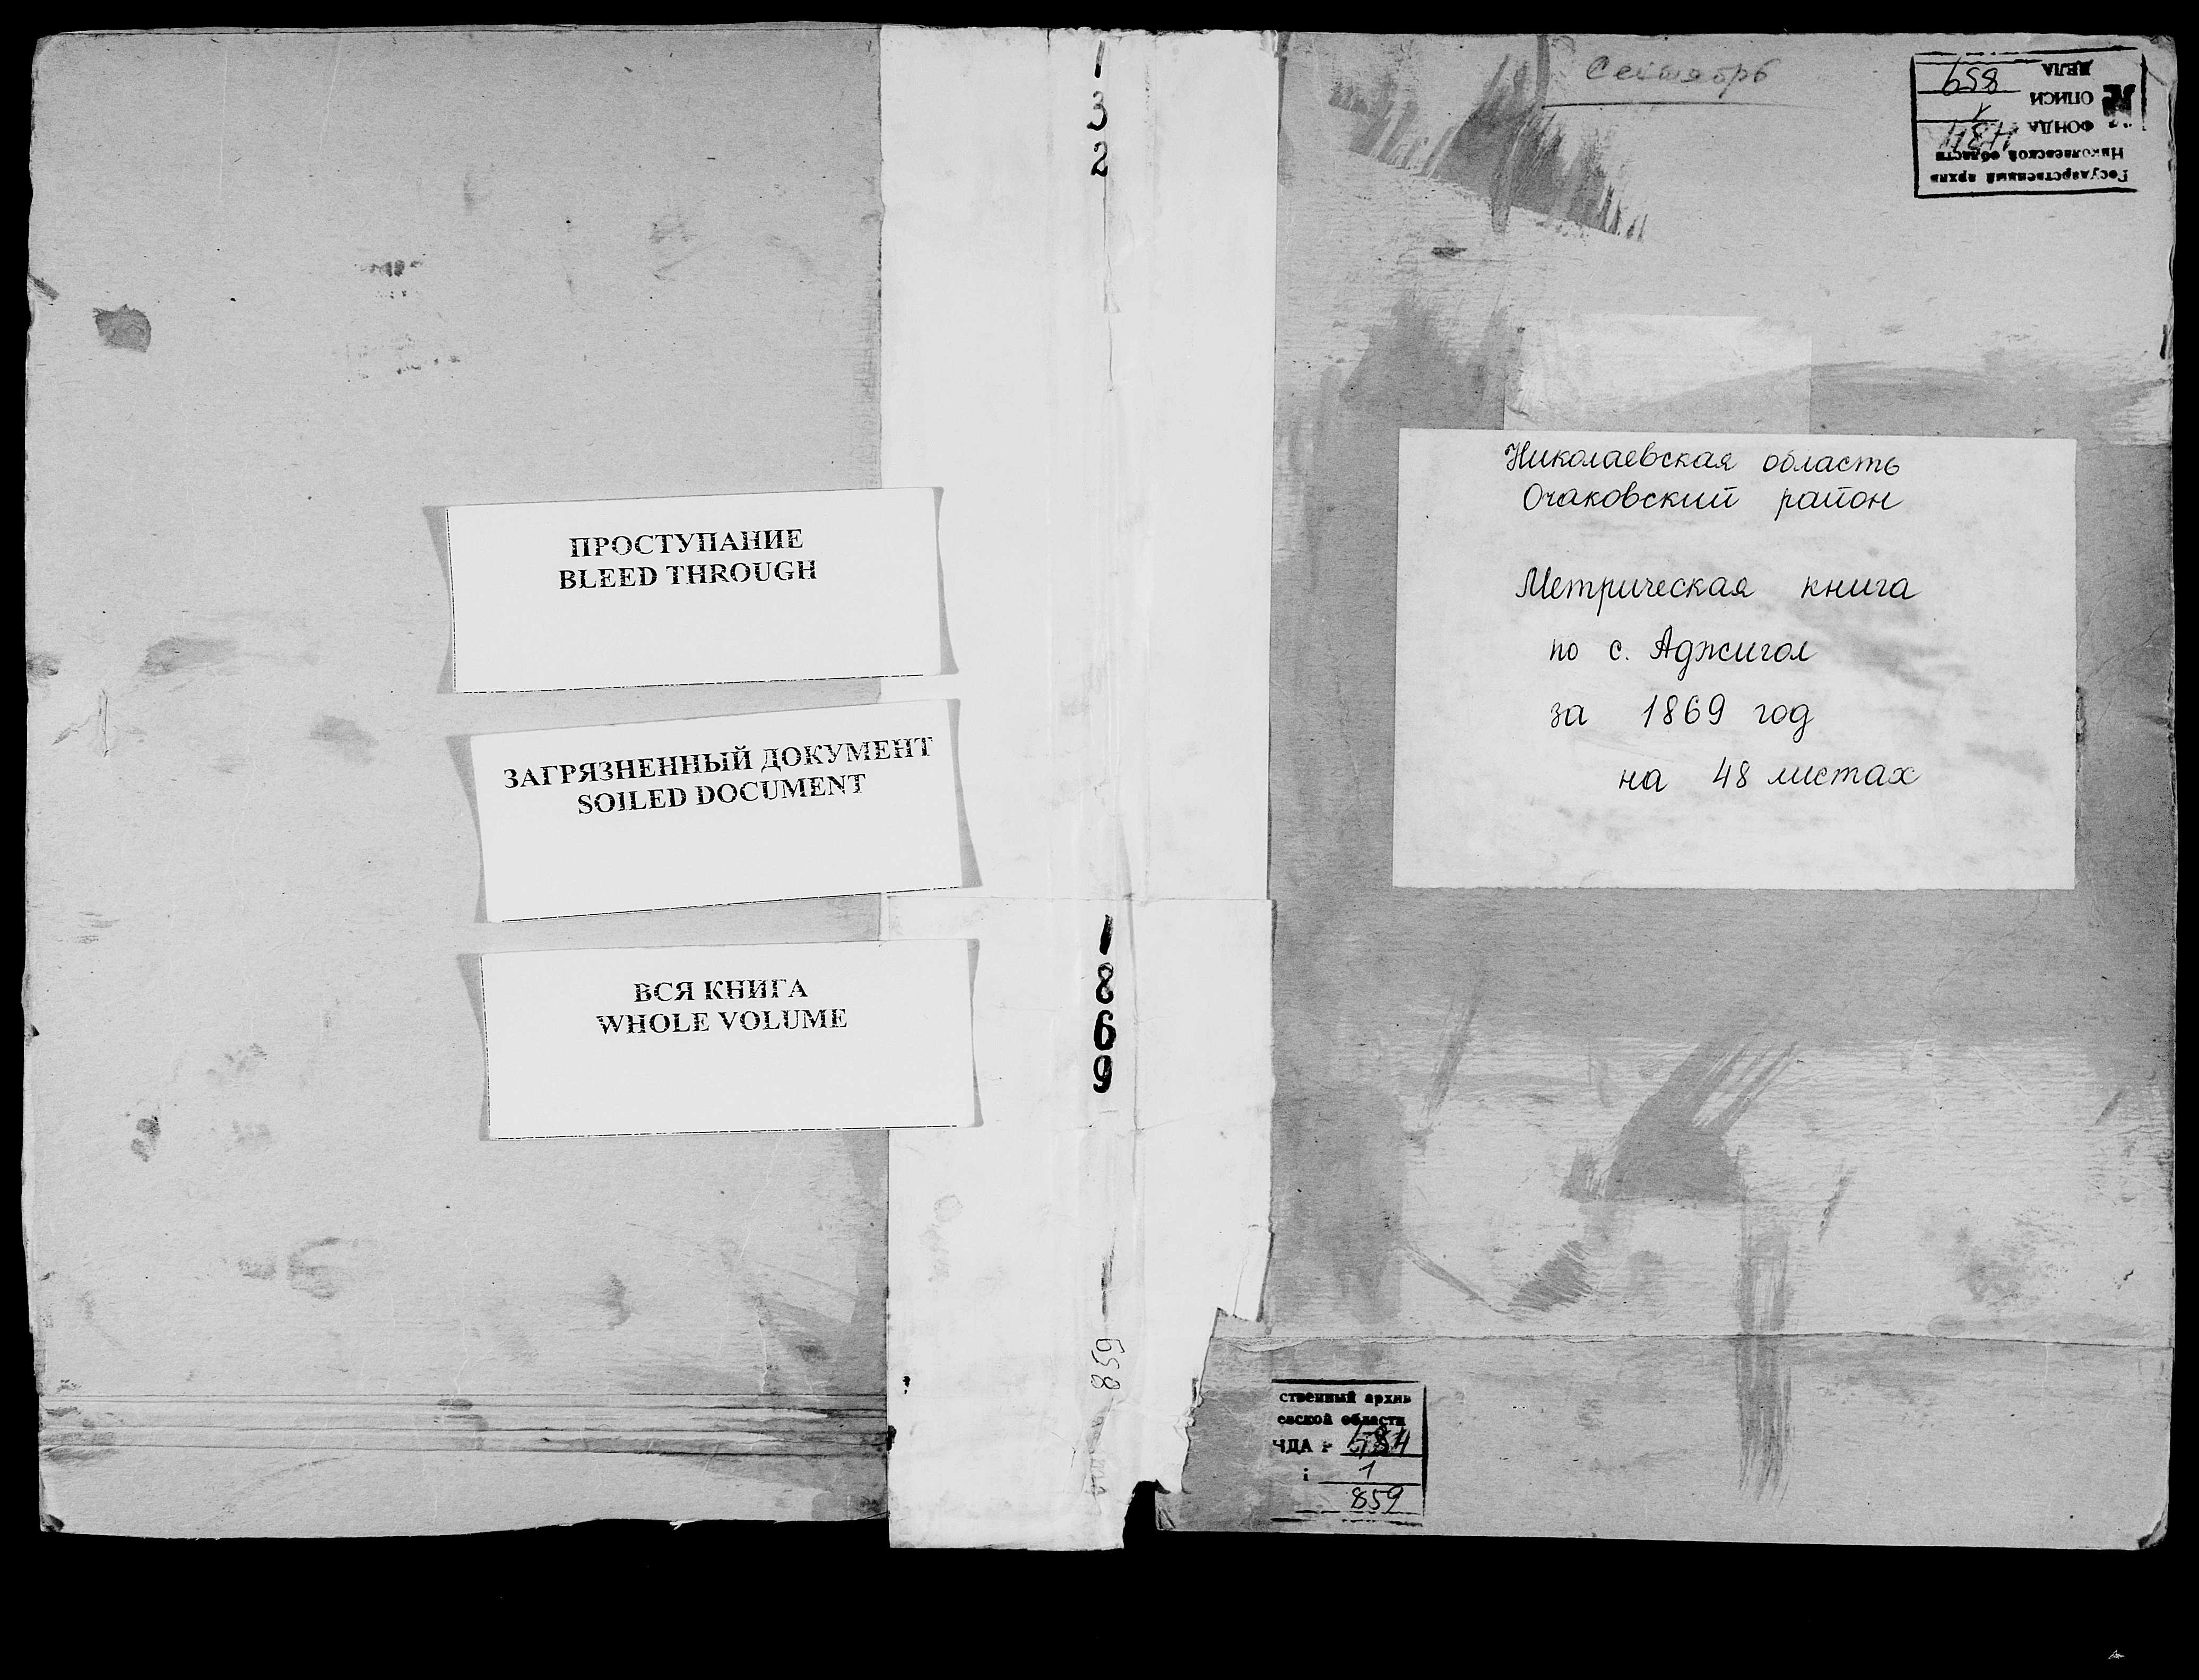 ПРОСТУПАНИЕ
BLEED THROUGH
ЗАГРЯЗНЕННЫЙ ДОКУМЕНТ
SOILED DOCUMENT
ВСЯ КНИГА
WHOLE VOLUME
132
1869
859
Сентябрь
Государственный архив
Николаевской области
ФОНДА 484
№ ОПИСИ 1
ДЕЛА 859
Николаевская область
Очаковский район
Метрическая книга
по с. Аджигол
за 1869 год
на 48 листах
ственный архив
евской области
НДА № 484
1
859